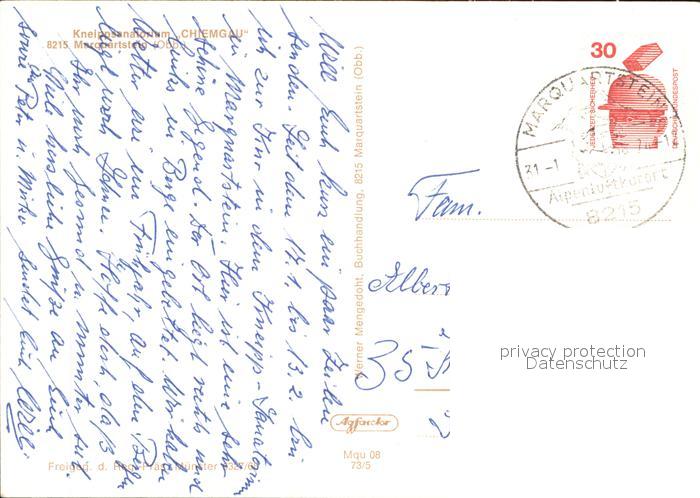 Kneippsanatorium „CHIEMGAU"
8215 Marquartstein (Obb.)
Will Euch kurz ein paar Zeilen
senden. Seit dem 17.1. bis 13.2. bin
ich zur Kur in dem Kneipp-Sanatorium
zu Marquartstein. Hier ist eine sehr
schöne Gegend der Ort liegt rechts und
links in Berge eingebettet. Wir haben
Wetter wie im Frühjahr, auf den Bergen
liegt noch Schnee. Hoffe doch, daß
Ihr noch gesund u. munter seid
Viele herzliche Grüße an Euch
sowie Peter u. Mirko sendet Euch Willi
Werner Mengedoht, Buchhandlung, 8215 Marquartstein (Obb.)
Freigeg. d. Reg. Präs. Münster
Agfacolor
Mqu 08
73/5
30
JEDERZEIT SICHERHEIT
DEUTSCHE BUNDESPOST
MARQUARTSTEIN
31.-1
Alpenluftkurort
8215
Fam.
Albers
35
privacy protection
Datenschutz